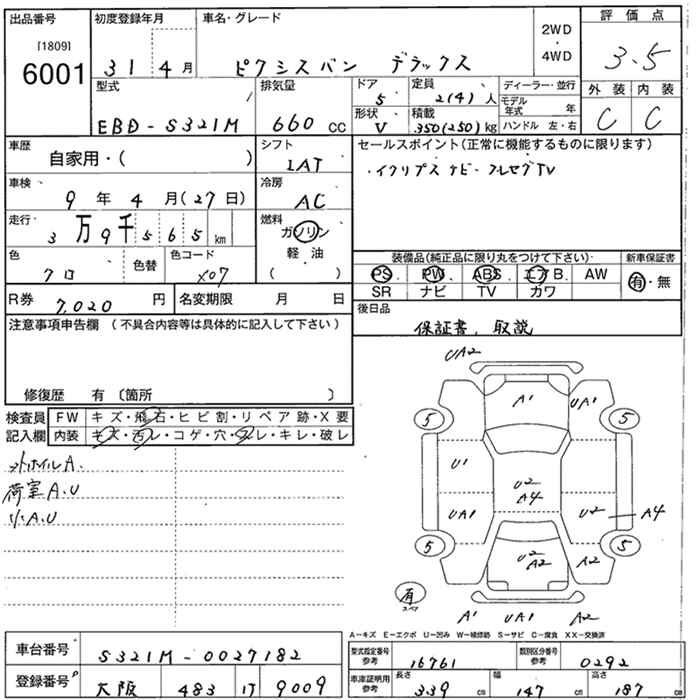 出品番号
[1809]
6001
初度登録年月
31 4月
車名・グレード
ピクシスバン デラックス
2WD
4WD
評価点
3.5
外装 内装
C C
型式
EBD-S321M
排気量
660 CC
ドア
5
形状
V
定員
2(4)人
積載
350(250)kg
ディーラー・並行
モデル年式 年
ハンドル 左・右
車歴
自家用・( )
シフト
IAT
車検
9年4月(27日)
冷房
AC
走行
3万9千565km
燃料
ガソリン
軽油
( )
色
クロ
色替
色コード
X07
R券 7,020円
名変期限 月 日
セールスポイント(正常に機能するものに限ります)
・イクリプスナビ・フルセグTV
装備品(純正品に限り丸をつけて下さい)
新車保証書
PS PW ABS エアB. AW
SR ナビ TV カワ
有・無
後日品
保証書、取説
注意事項申告欄(不具合内容等は具体的に記入して下さい)
修復歴 有〔箇所 〕
検査員記入欄
FW キズ・飛石・ヒビ割・リペア跡・X要
内装 キズ・汚レ・コゲ・穴・スレ・キレ・破レ
外ホイルA.
荷室A.U
リ.A.U
UA2
A1 UA1
5 5
U1
U2
A4
UA1 U2 A4
5 5
U2
A2
A2
有
スペア
A1 UA1 A2
A-キズ E-エクボ U-凹み W-補修跡 S-サビ C-腐食 XX-交換済
車台番号 S321M-0027182
登録番号 大阪 483 け 9009
型式指定番号 参考 16761
類別区分番号 参考 0292
車庫証明用 参考
長さ 339cm
幅 147cm
高さ 187cm